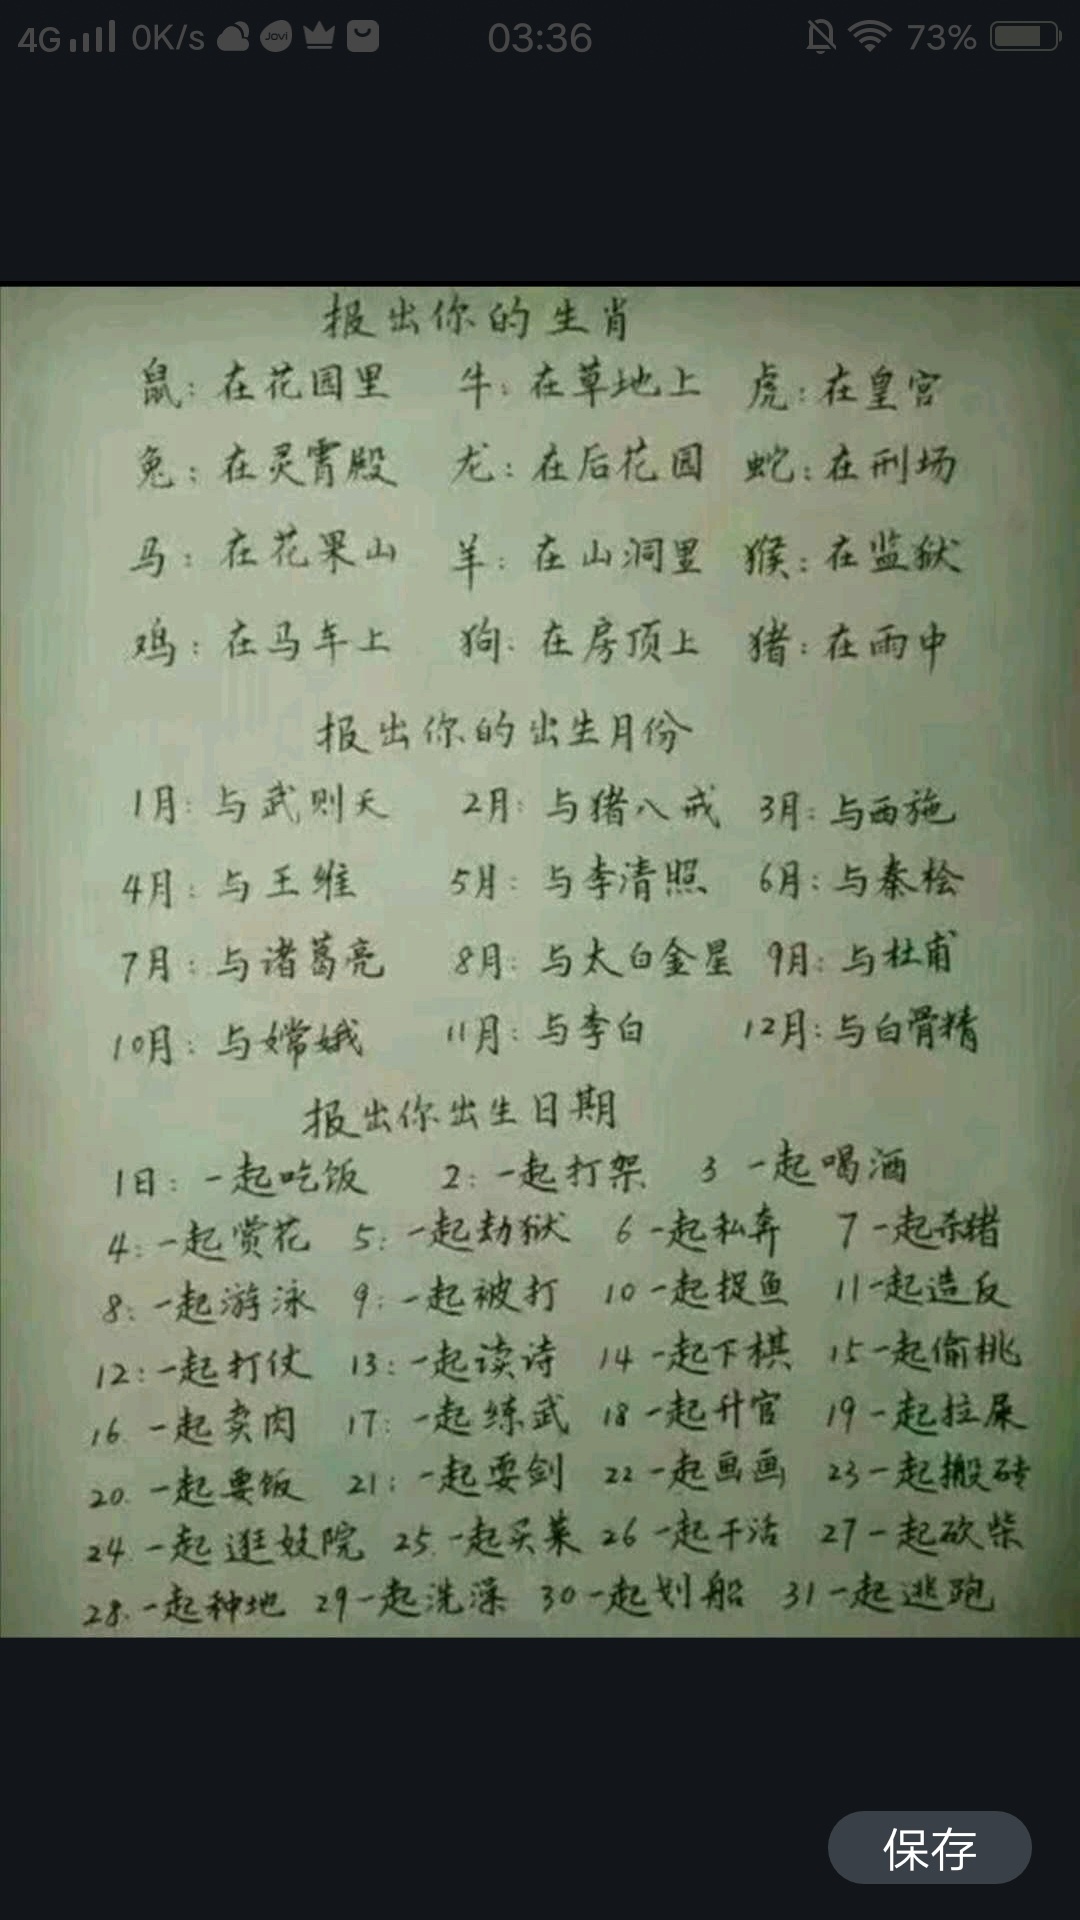 4G 0K/s Jovi 03:36 73%
报出你的生肖
鼠：在花园里 牛：在草地上 虎：在皇宫
兔：在灵霄殿 龙：在后花园 蛇：在刑场
马：在花果山 羊：在山洞里 猴：在监狱
鸡：在马车上 狗：在房顶上 猪：在雨中
报出你的出生月份
1月：与武则天 2月：与猪八戒 3月：与西施
4月：与王维 5月：与李清照 6月：与秦桧
7月：与诸葛亮 8月：与太白金星 9月：与杜甫
10月：与嫦娥 11月：与李白 12月：与白骨精
报出你出生日期
1日：一起吃饭 2：一起打架 3 一起喝酒
4：一起赏花 5：一起劫狱 6 一起私奔 7 一起杀猪
8：一起游泳 9：一起被打 10 一起捉鱼 11 一起造反
12：一起打仗 13：一起读诗 14 一起下棋 15 一起偷桃
16. 一起卖肉 17：一起练武 18 一起升官 19 一起拉屎
20. 一起要饭 21：一起耍剑 22 一起画画 23 一起搬砖
24. 一起逛妓院 25. 一起买菜 26 一起干活 27 一起砍柴
28. 一起种地 29 一起洗澡 30 一起划船 31 一起逃跑
保存